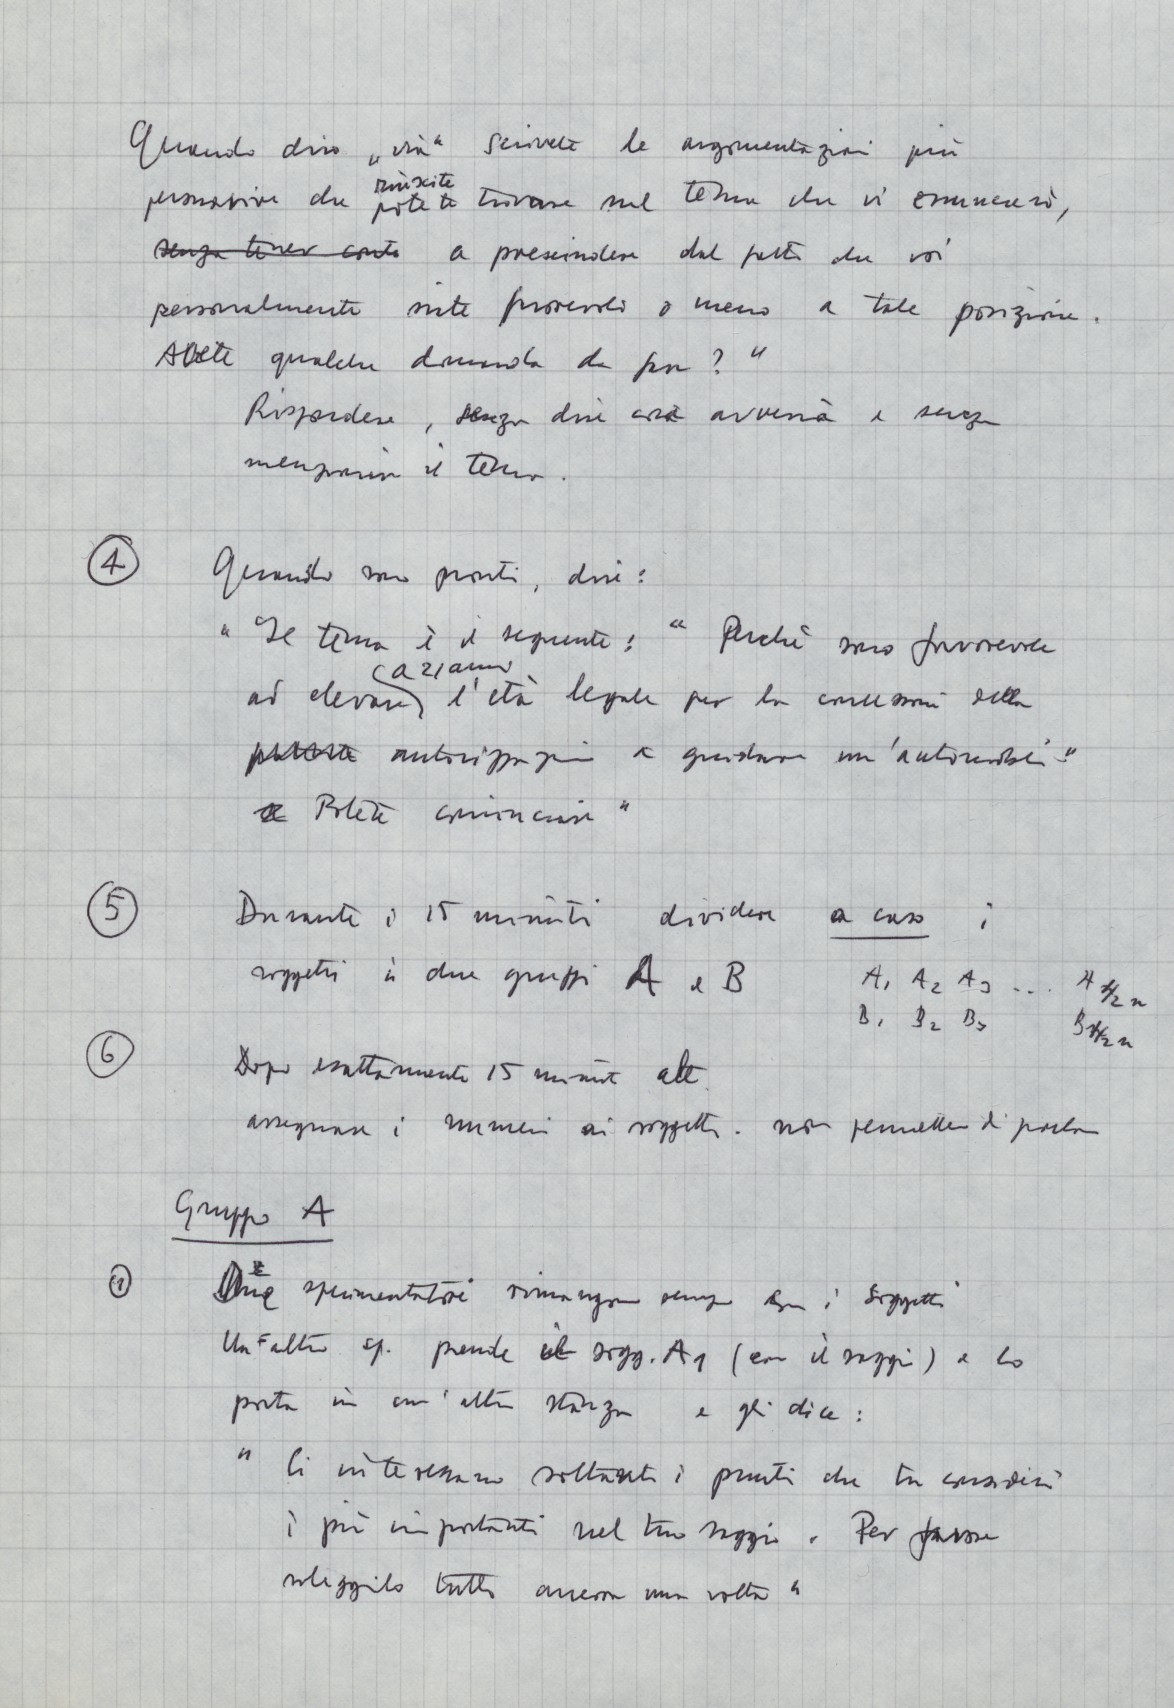 Quando dirò „via“ scrivete le argomentazioni più
riuscite
persuasive che potete trovare sul tema che vi enuncerò,
senza tener conto a prescindere dal fatto che voi
personalmente siete favorevoli o meno a tale posizione.
Avete qualche domanda da fare? "
Rispondere, senza dire cosa avverrà e senza
menzionare il tema.
④ Quando sono pronti, dire:
" Il tema è il seguente: " Perché sono favorevole
a 21 anni
ad elevare l'età legale per la concessione della
autorizzazione a guidare un'automobile"
Potete cominciare "
⑤ Durante i 15 minuti dividere a caso i
soggetti in due gruppi A e B A1 A2 A3 .... A 1/2 n
B1 B2 B3 B 1/2 n
⑥ Dopo esattamente 15 minuti alt
assegnare i numeri ai soggetti. non permettere di parlare
Gruppo A
① Due sperimentatori rimangono sempre con i soggetti
Un altro sp. prende il sogg. A1 (con il saggio) e lo
porta in un'altra stanza e gli dice:
" Ci interessano soltanto i punti che tu consideri
i più importanti nel tuo saggio. Per favore
rileggilo tutto ancora una volta "